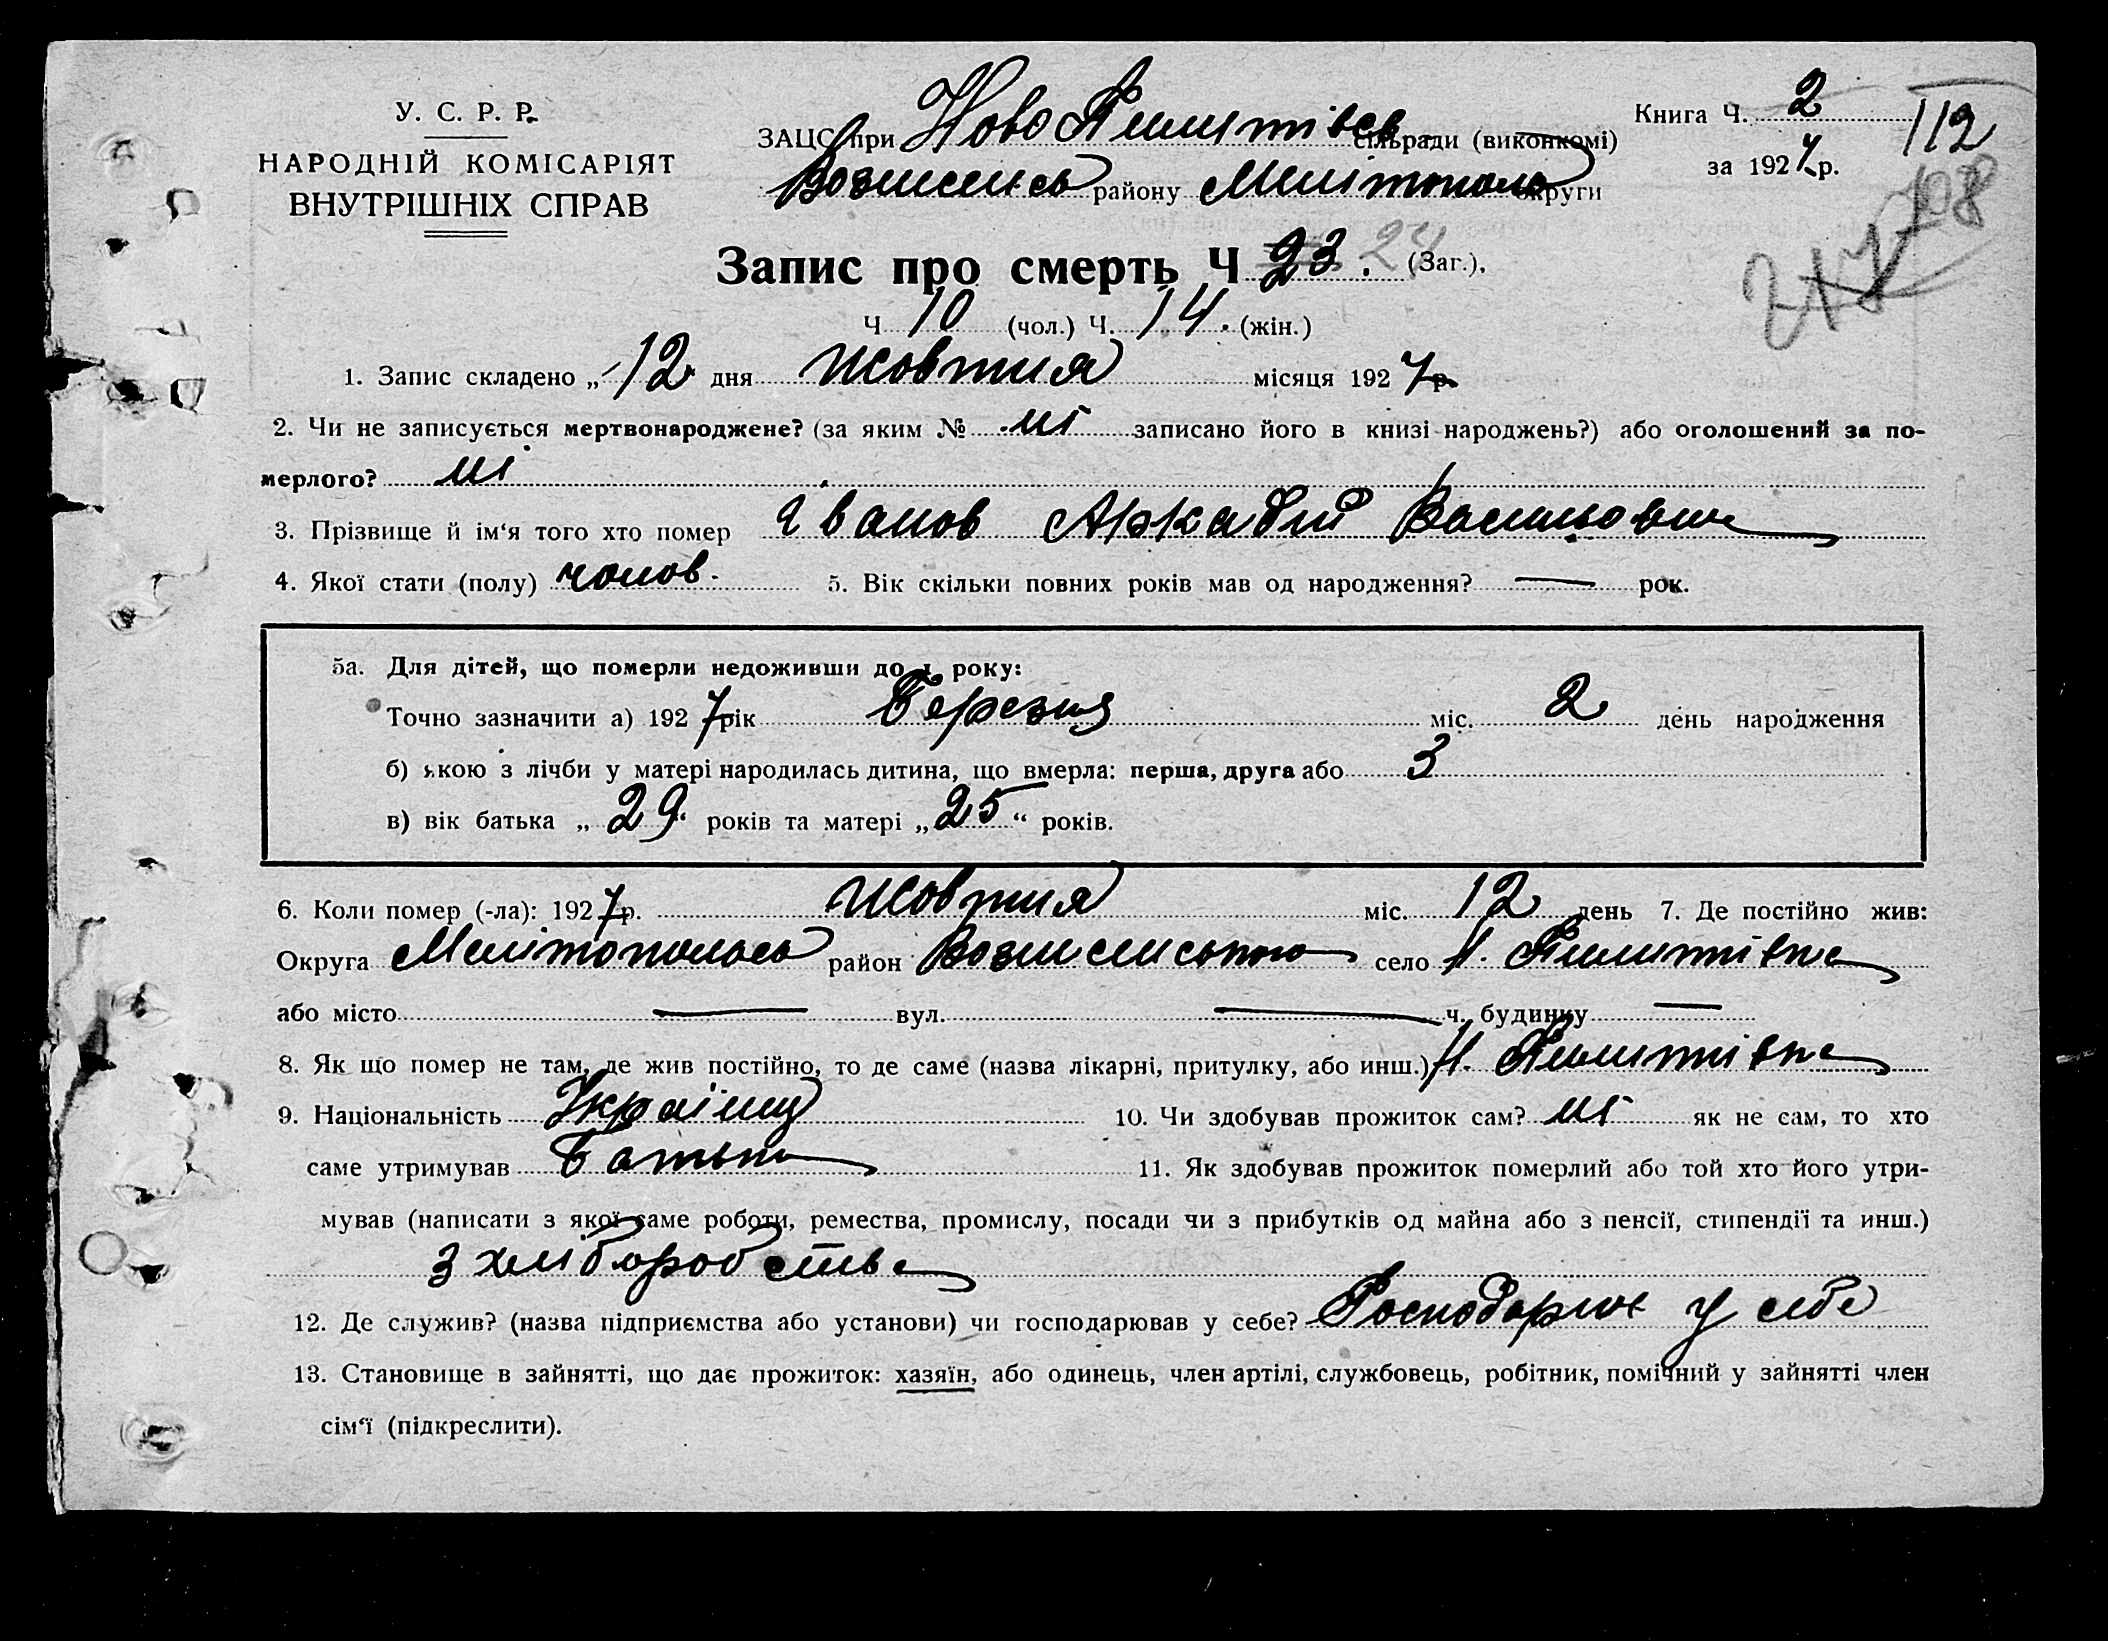 У. С. Р. Р.
НАРОДНІЙ КОМІСАРІЯТ
ВНУТРІШНІХ СПРАВ
ЗАЦС при Ново Пилитівсь сільради (виконкомі)
Вознесенсь району Мелітополь округи
Книга Ч. 2
за 1927 р.
112
Запис про смерть Ч 23. 24 (Заг.).
Ч 10 (чол.) Ч. 14. (жін.)
1. Запис складено „12 дня жовтня місяця 1927 р.
2. Чи не записується мертвонароджене? (за яким № ні записано його в книзі народжень?) або оголошений за по-
мерлого? ні
3. Прізвище й ім‘я того хто помер Іванов Аркадій
4. Якої стати (полу) чолов. 5. Вік скільки повних років мав од народження? — рок.
5а. Для дітей, що померли недоживши до 1 року:
Точно зазначити а) 1927 рік Березня міс. 2 день народження
б) якою з лічби у матері народилась дитина, що вмерла: перша, друга або 3
в) вік батька „29“ років та матері „25“ років.
6. Коли помер (-ла): 1927 р. жовтня міс. 12 день 7. Де постійно жив:
Округа Мелітопольсь район Вознесенського село Н. Пилитівка
або місто — вул. — ч. будинку —
8. Як що помер не там, де жив постійно, то де саме (назва лікарні, притулку, або инш.) Н. Пилитівка
9. Національність Україн. 10. Чи здобував прожиток сам? ні як не сам, то хто
саме утримував Батько 11. Як здобував прожиток померлий або той хто його утри-
мував (написати з якої саме роботи, ремества, промислу, посади чи з прибутків од майна або з пенсії, стипендії та инш.)
З хліборобства
12. Де служив? (назва підприємства або установи) чи господарював у себе? Господарює у себе
13. Становище в зайнятті, що дає прожиток: хазяїн, або одинець, член артілі, службовець, робітник, помічний у зайнятті член
сім‘ї (підкреслити).